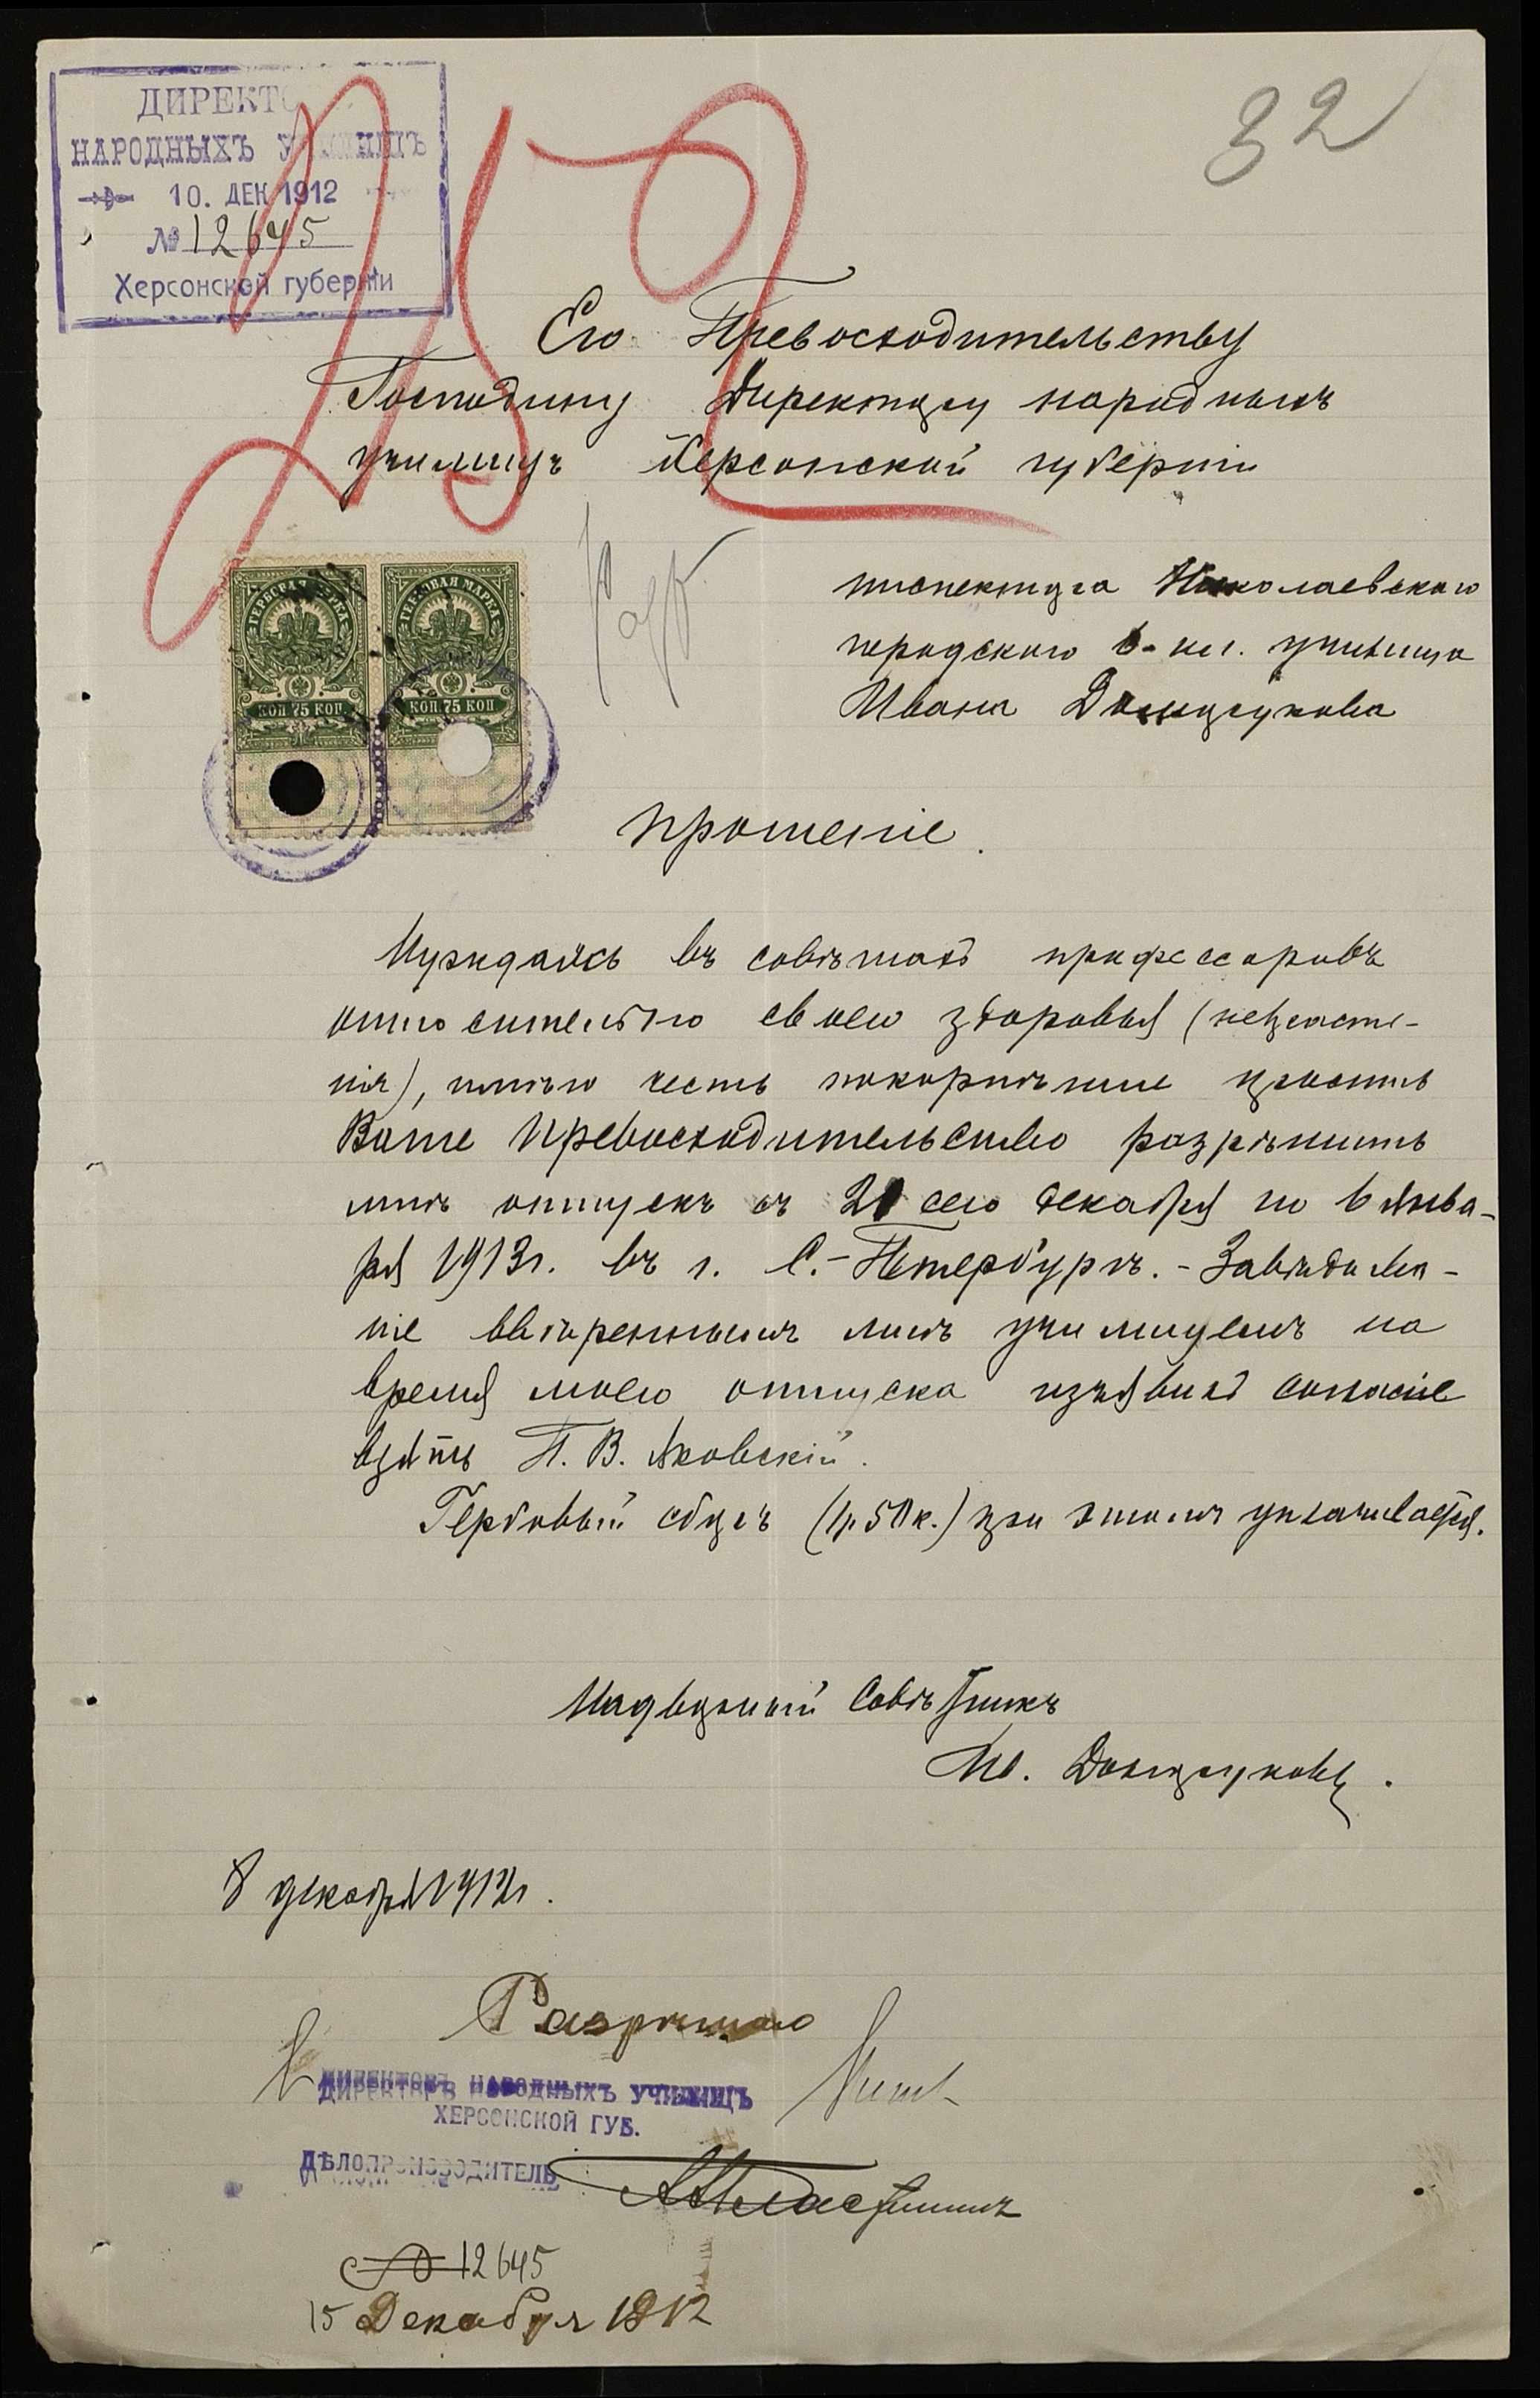 32
ДИРЕКТО
НАРОДНЫХЪ УЧИЛИЩЪ
10. ДЕК 1912
№ 12645
Херсонской губерніи
Его Превосходительству
Господину Директору народныхъ
училищъ Херсонской губерніи
ГЕРБОВАЯ МАРКА ГЕРБОВАЯ МАРКА
КОП 75 КОП КОП 75 КОП
инспектора Николаевскаго
городского 6-кл. училища
Ивана
прошеніе.
Нуждаясь въ совѣтахъ профессоровъ
относительно своего здоровья (неврасте-
нія), имѣю честь покорнѣйше просить
Ваше Превосходительство разрѣшить
мнѣ отпускъ съ 21 сего декабря по 6 янва-
ря 1913 г. въ г. С.-Петербургъ. - Завѣдыва-
ніе ввѣреннымъ мнѣ училищемъ на
время моего отпуска изъявилъ согласіе
взять П. В. Яковскій.
Гербовый сборъ (1 р. 50 к.) при этомъ уплачивается.
Надворный Совѣтникъ
Ив.
8 декабря 1912 г.
Разрѣшаю
ДИРЕКТОРЪ НАРОДНЫХЪ УЧИЛИЩЪ
ХЕРСОНСКОЙ ГУБ.
ДѢЛОПРОИЗВОДИТЕЛЬ
№ 12645
15 Декабря 1912